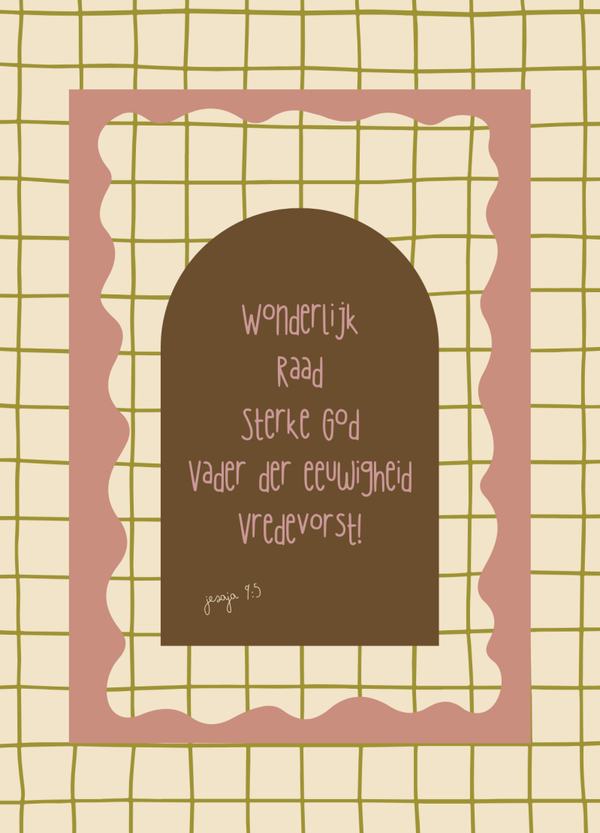 Wonderlijk
Raad
Sterke God
Vader der eeuwigheid
Vredevorst!
jesaja 9:5